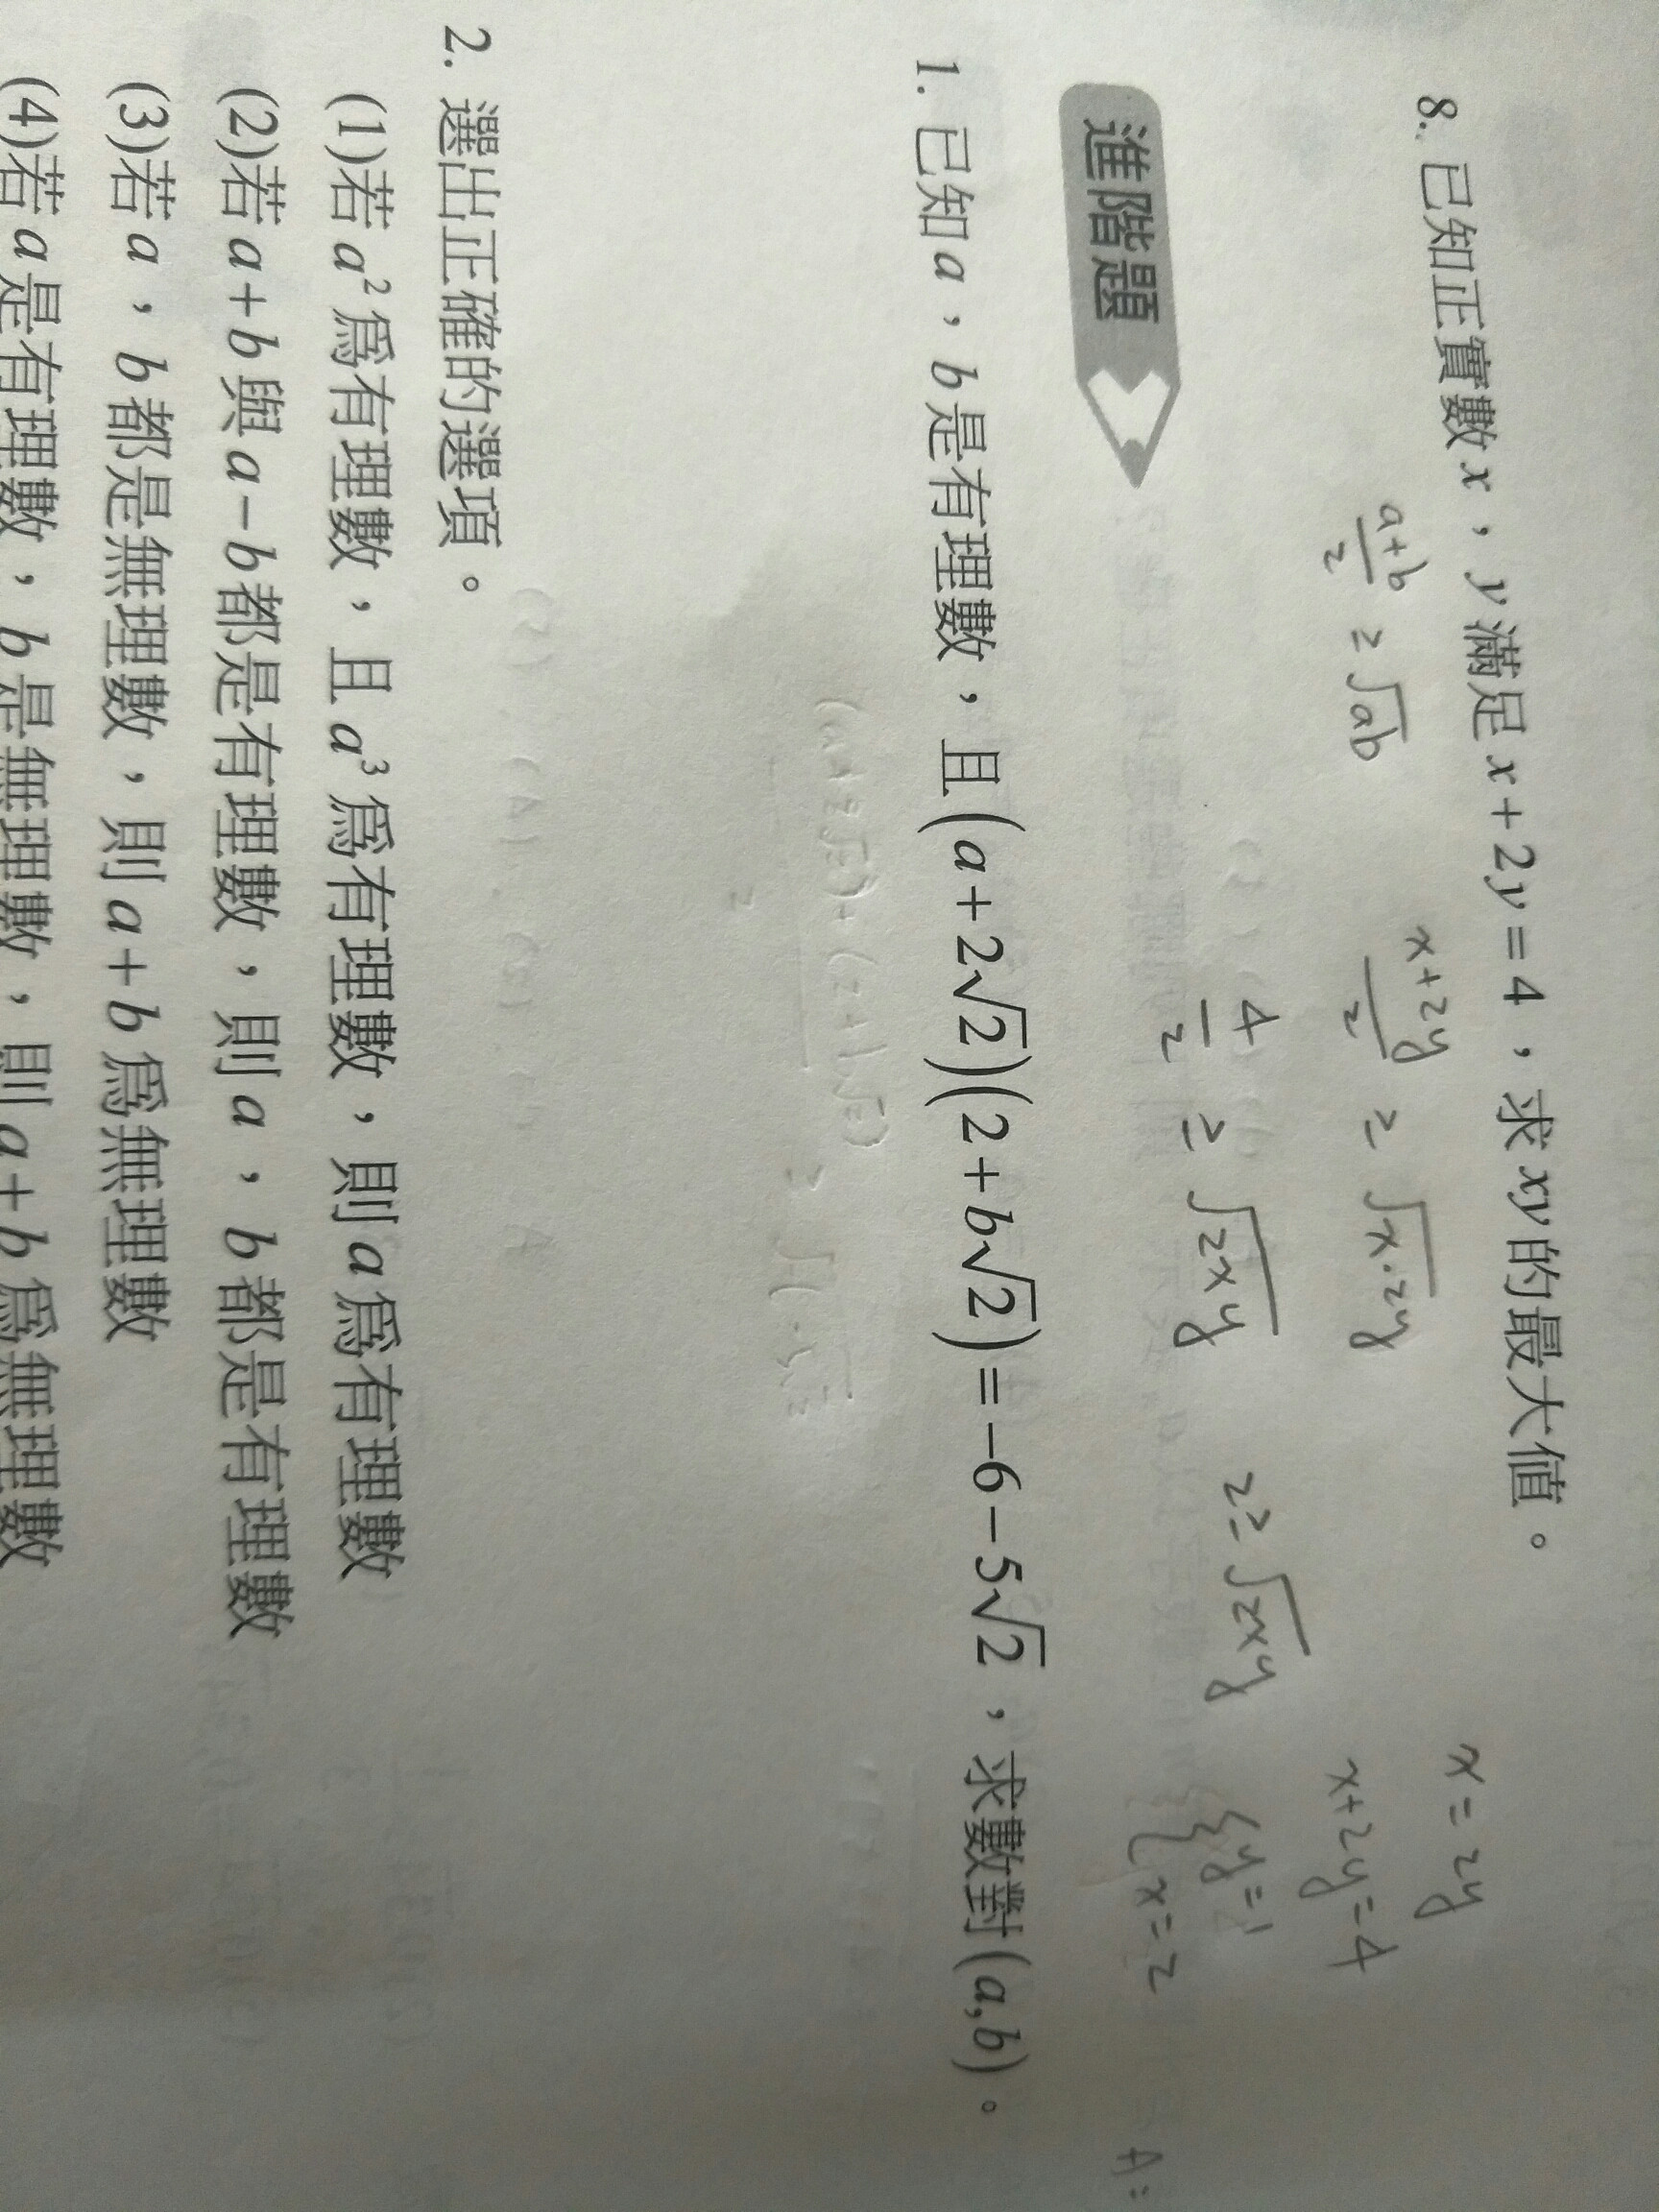 8. 已知正實數 x，y 滿足 x+2y=4，求 xy 的最大值。
a+b/2 ≥ √ab
x+2y/2 ≥ √x·2y
x=2y
x+2y=4
4/2 ≥ √2xy
2≥√2xy
{y=1
{x=2
A:
進階題
1. 已知 a，b 是有理數，且(a+2√2)(2+b√2)=-6-5√2，求數對(a,b)。
2. 選出正確的選項。
(1)若 a²爲有理數，且 a³爲有理數，則 a 爲有理數
(2)若 a+b 與 a-b 都是有理數，則 a，b 都是有理數
(3)若 a，b 都是無理數，則 a+b 爲無理數
(4)若 a 是有理數，b 是無理數，則 a+b 爲無理數